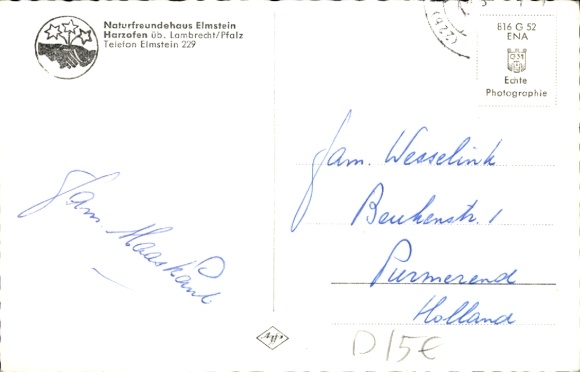 Naturfreundehaus Elmstein
Harzofen üb. Lambrecht/Pfalz
Telefon Elmstein 229
816 G 52
ENA
Echte
Photographie
Fam. Wesselink
Beukenstr. 1
Purmerend
Holland
Fam. Maaskant
D15€